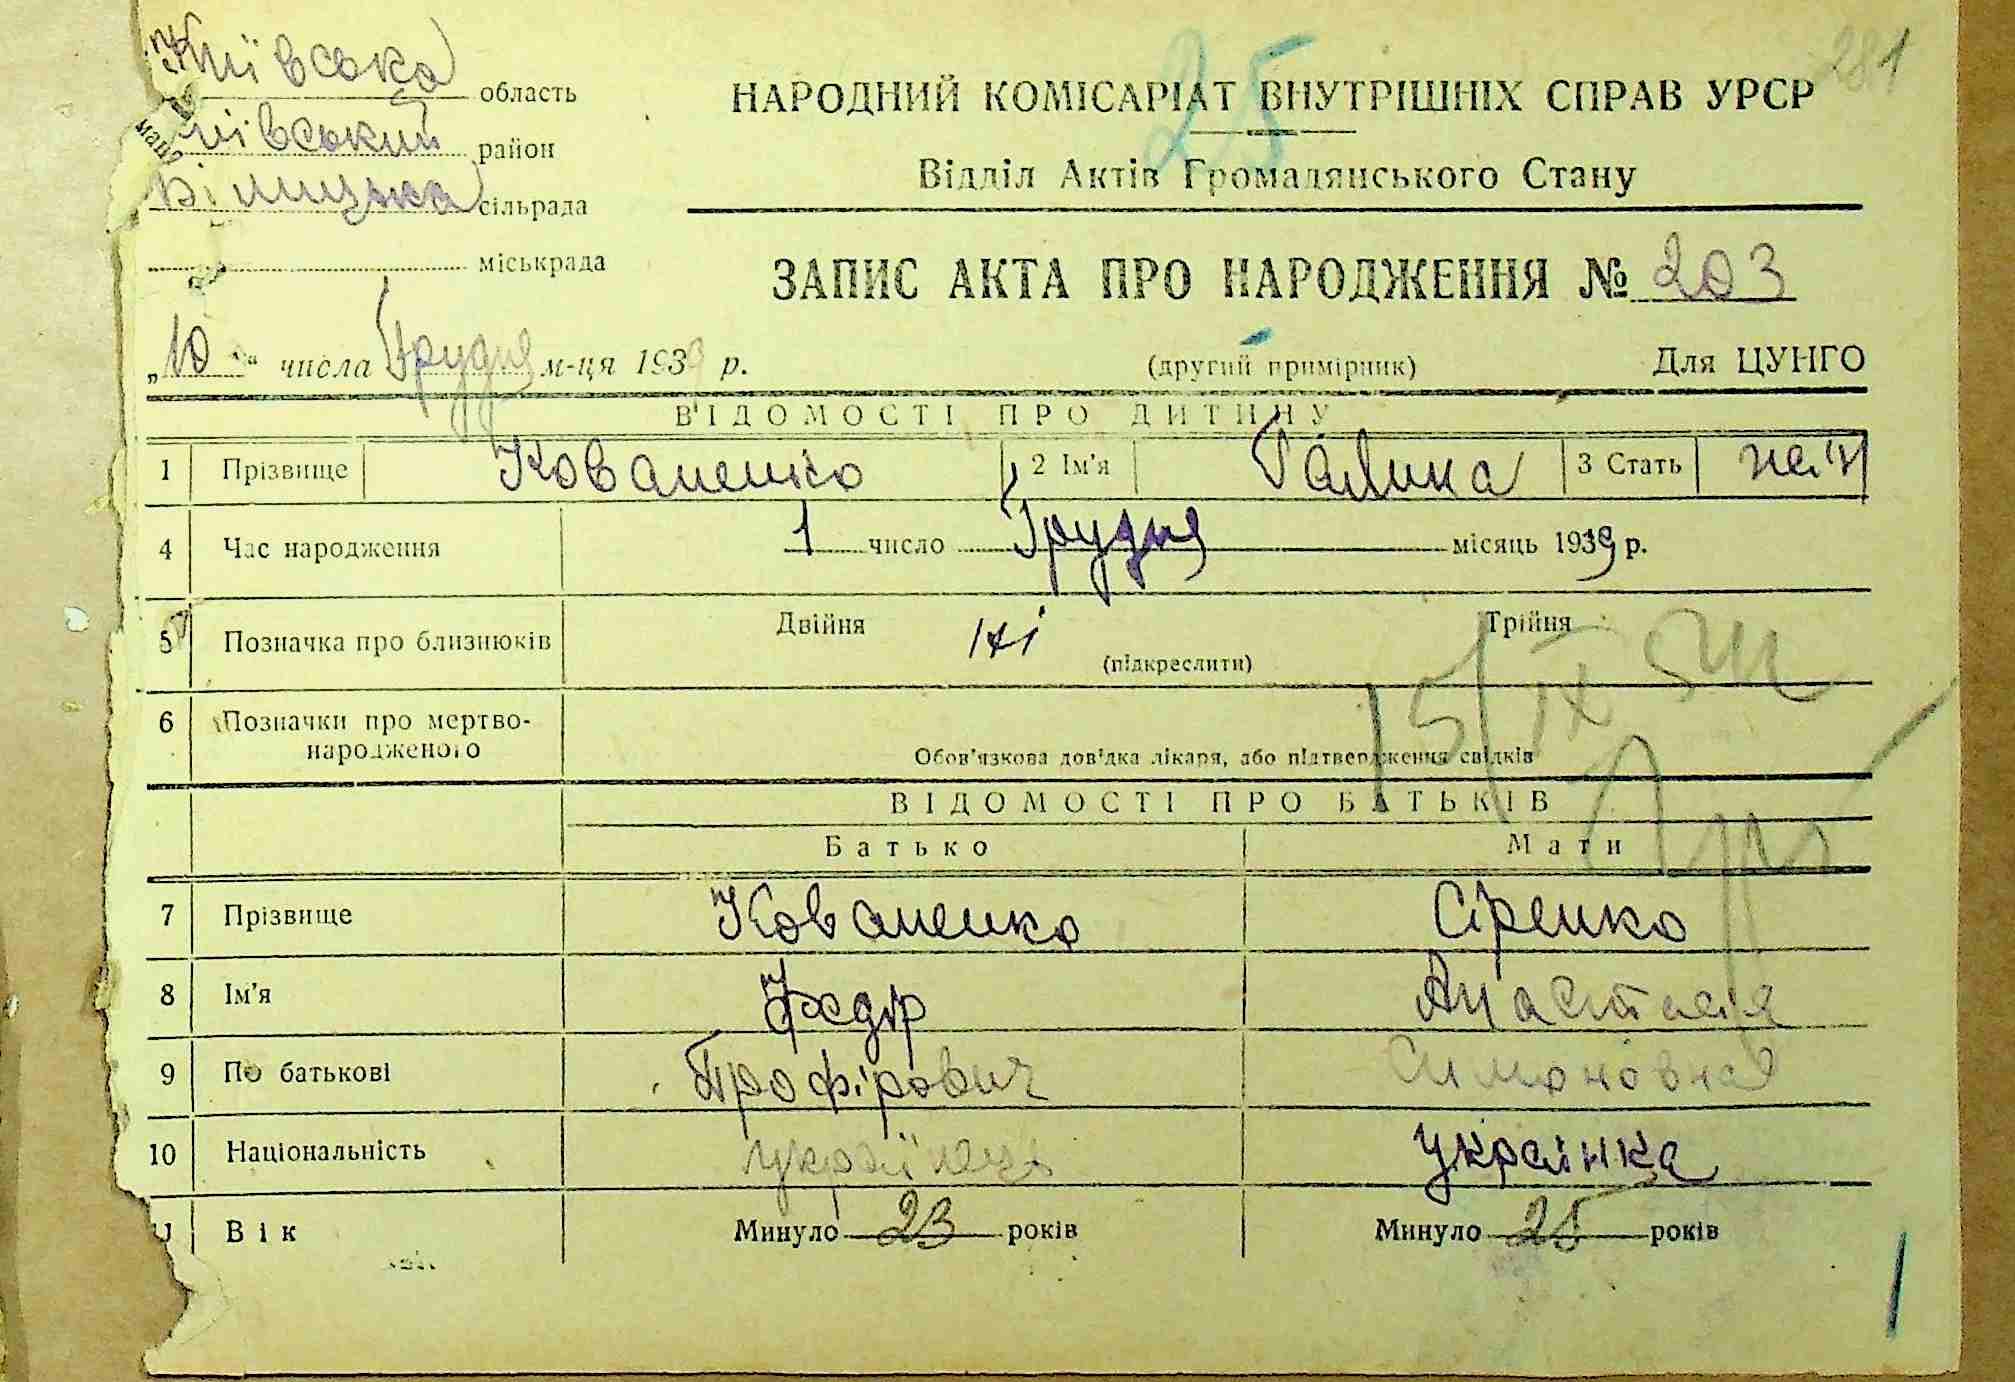 281
25
Київська область
Київський район
Білицька сільрада
міськрада
НАРОДНИЙ КОМІСАРІАТ ВНУТРІШНІХ СПРАВ УРСР
Відділ Актів Громадянського Стану
ЗАПИС АКТА ПРО НАРОДЖЕННЯ № 203
„10“ числа Грудня м-ця 1939 р.
(другий примірник)
Для ЦУНГО
ВІДОМОСТІ ПРО ДИТИНУ
1 Прізвище Коваленко 2 Ім'я Галина 3 Стать
4 Час народження 1 число Грудня місяць 1939 р.
5 Позначка про близнюків Двійня ні Трійня
(підкреслити)
6 Позначки про мертво-
народженого
Обов'язкова довідка лікаря, або підтвердження свідків
ВІДОМОСТІ ПРО БАТЬКІВ
Батько Мати
7 Прізвище Коваленко Сіренко
8 Ім'я Федір Анастасія
9 По батькові Трофірович Симоновна
10 Національність українець українка
11 Вік Минуло 23 років Минуло 25 років